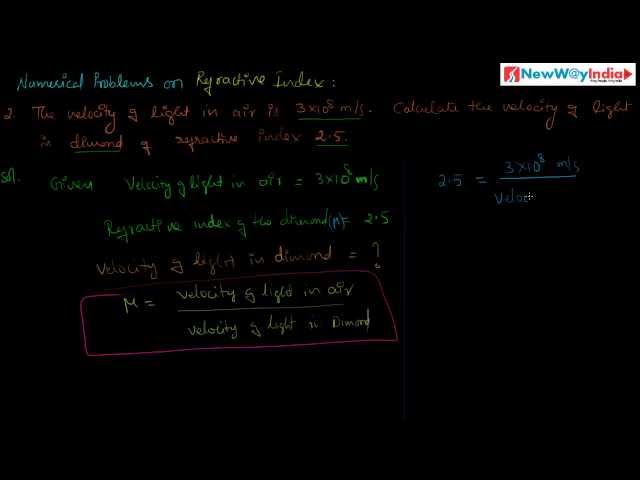 NewW@yIndia
Numerical Problems on Refractive Index:
2. The velocity of light in air is 3×10⁸ m/s. Calculate the velocity of light
in dimond of refractive index 2.5.
Sol. Given Velocity of light in air = 3×10⁸ m/s
Refractive index of the dimond (μ) = 2.5
Velocity of light in dimond = ?
μ = velocity of light in air
velocity of light in Dimond
2.5 = 3×10⁸ m/s
Veloc